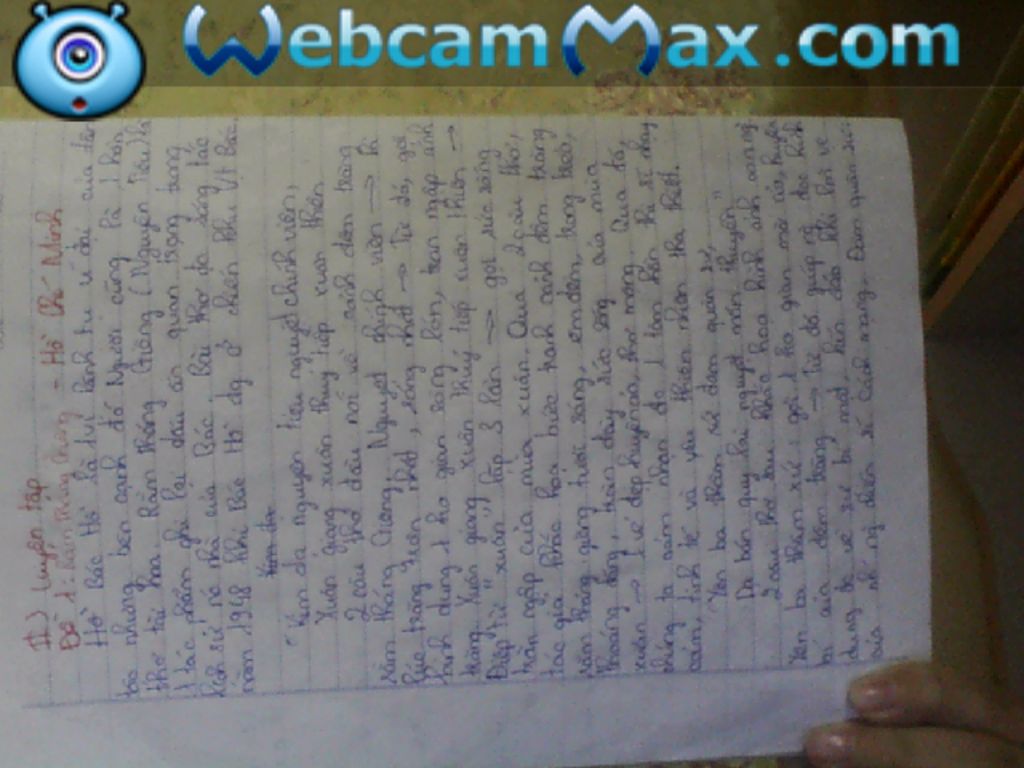 WebcamMax.com
II.) Luyện tập
Đề 1: Rằm Tháng Giêng - Hồ Chí Minh
Hồ Bác Hồ là vị lãnh tụ vĩ đại của dân
tộc nhưng bên cạnh đó Người cũng là 1 hồn
thơ tài hoa. Rằm tháng Giêng (Nguyên Tiêu) là
1 tác phẩm ghi lại dấu ấn quan trọng trong
lịch sử nó của Bác. Bài thơ đc sáng tác
năm 1948 khi Bác Hồ đg ở chiến khu Việt Bắc.
"Kim dạ nguyên tiêu nguyệt chính viên,
Xuân giang xuân thuỷ tiếp xuân thiên
2 câu thơ đầu nói về cảnh đêm trăng
rằm tháng Giêng. Nguyệt chính viên → là
lúc trăng tròn nhất, sáng nhất → Từ đó, gợi
hình dung 1 ko gian sáng lớn, tràn ngập ánh
trăng. Xuân giang xuân thuỷ tiếp xuân thiên →
Điệp từ "xuân" lặp 3 lần → gợi sức sống
tràn ngập của mùa xuân. Qua 2 câu thơ,
tác giả khắc hoạ bức tranh cảnh đêm trăng
rằm tháng giêng tươi sáng, êm đềm, trong trẻo,
thoáng đãng, tràn đầy sức sống của mùa
xuân → 1 vẻ đẹp huyền ảo, thơ mộng. Qua đó,
chúng ta cảm nhận đc 1 tâm hồn thi sĩ nhạy
cảm, tinh tế và yêu thiên nhiên tha thiết.
"Yên ba thâm xứ đàm quân sự,
Dạ bán quy lai nguyệt mãn thuyền"
2 câu thơ sau khắc hoạ hình ảnh con ng.
Yên ba thâm xứ: gợi 1 ko gian mờ ảo, huyền
bí của đêm trăng → Từ đó giúp ng đọc hình
dung đc về sự bí mật, kín đáo khi nói về
của n ng chiến sĩ Cách mạng. Đàm quân sự: